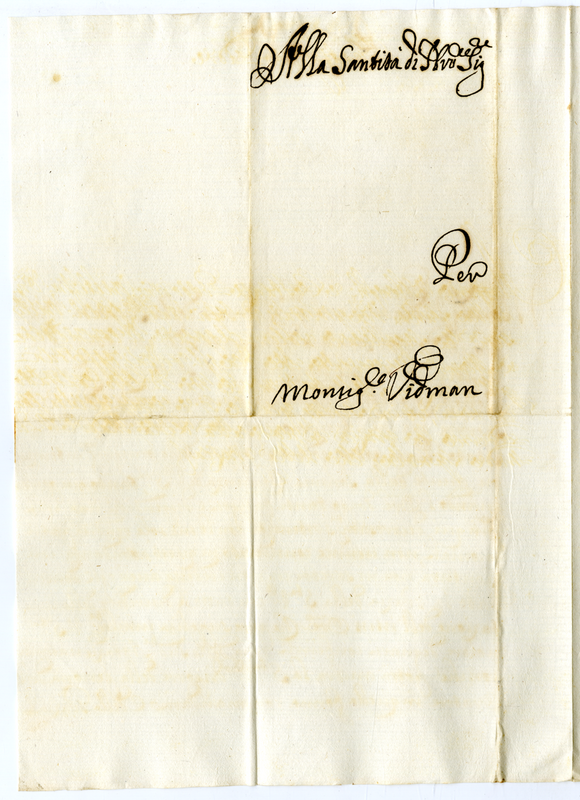 Alla Santità di Nro Sig.re
Per
Monsig.re Vidman